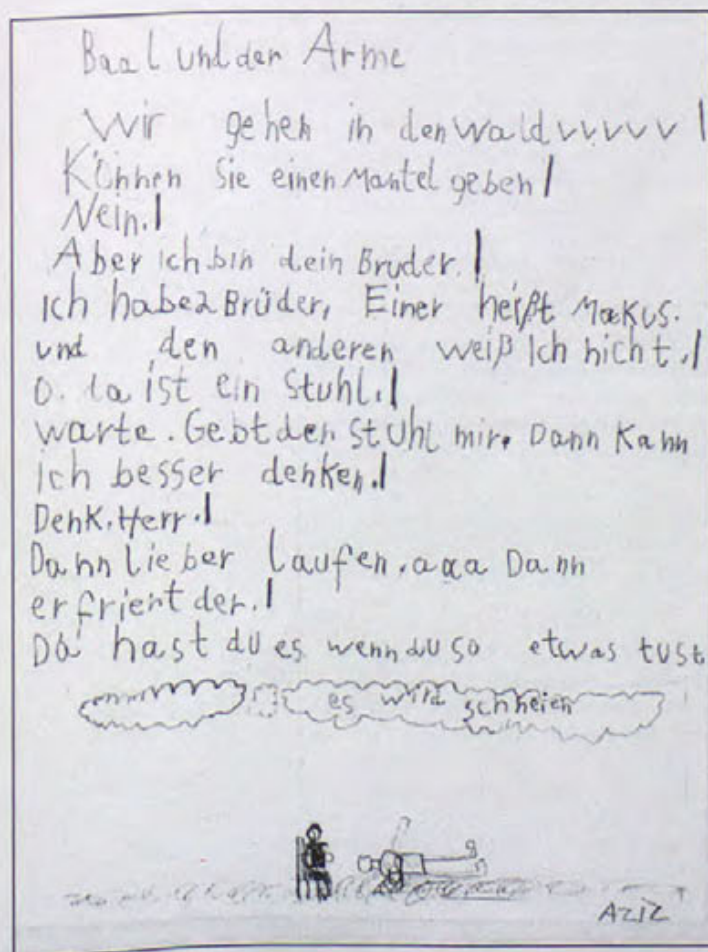 Baal und der Arme
Wir gehen in den Wald vvvvv |
Können Sie einen Mantel geben |
Nein. |
Aber ich bin dein Bruder. |
ich habe 2 Brüder, Einer heißt Makus.
und den anderen weiß ich nicht. |
O. da ist ein Stuhl. |
warte. Gebt den Stuhl mir. Dann Kann
ich besser denken. |
Denk. Herr. |
Dann lieber laufen. aaa Dann
erfrient der. |
Da hast du es wenn du so etwas tust
es wird schneien
AZIZ